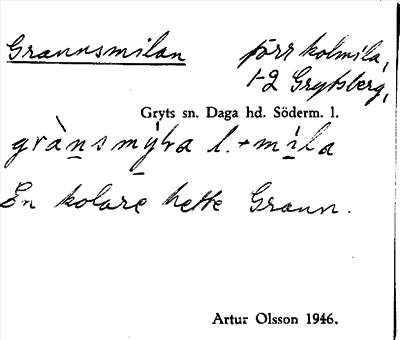 Grannsmilan
förr kolmila,
1-2 Grytsberg,
Gryts sn. Daga hd. Söderm. l.
grànsmýra l. + mila
En kolare hette Grann.
Artur Olsson 1946.